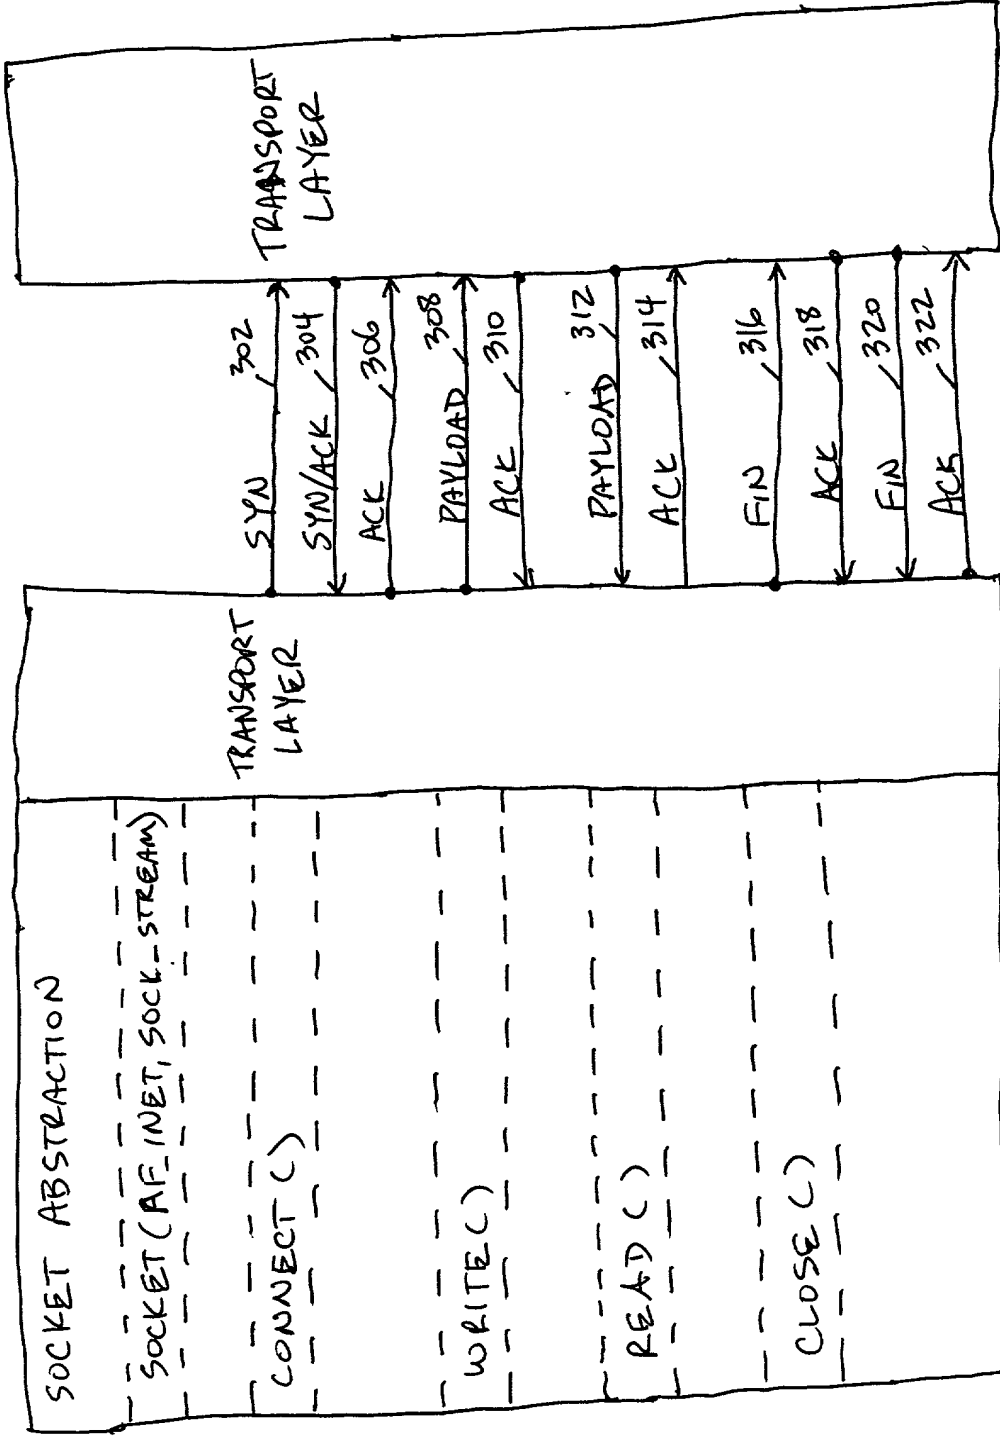 SOCKET ABSTRACTION
SOCKET (AF_INET, SOCK_STREAM)
CONNECT ()
WRITE ()
READ ()
CLOSE ()
TRANSPORT
LAYER
SYN 302
SYN/ACK 304
ACK 306
PAYLOAD 308
ACK 310
PAYLOAD 312
ACK 314
FIN 316
ACK 318
FIN 320
ACK 322
TRANSPORT
LAYER